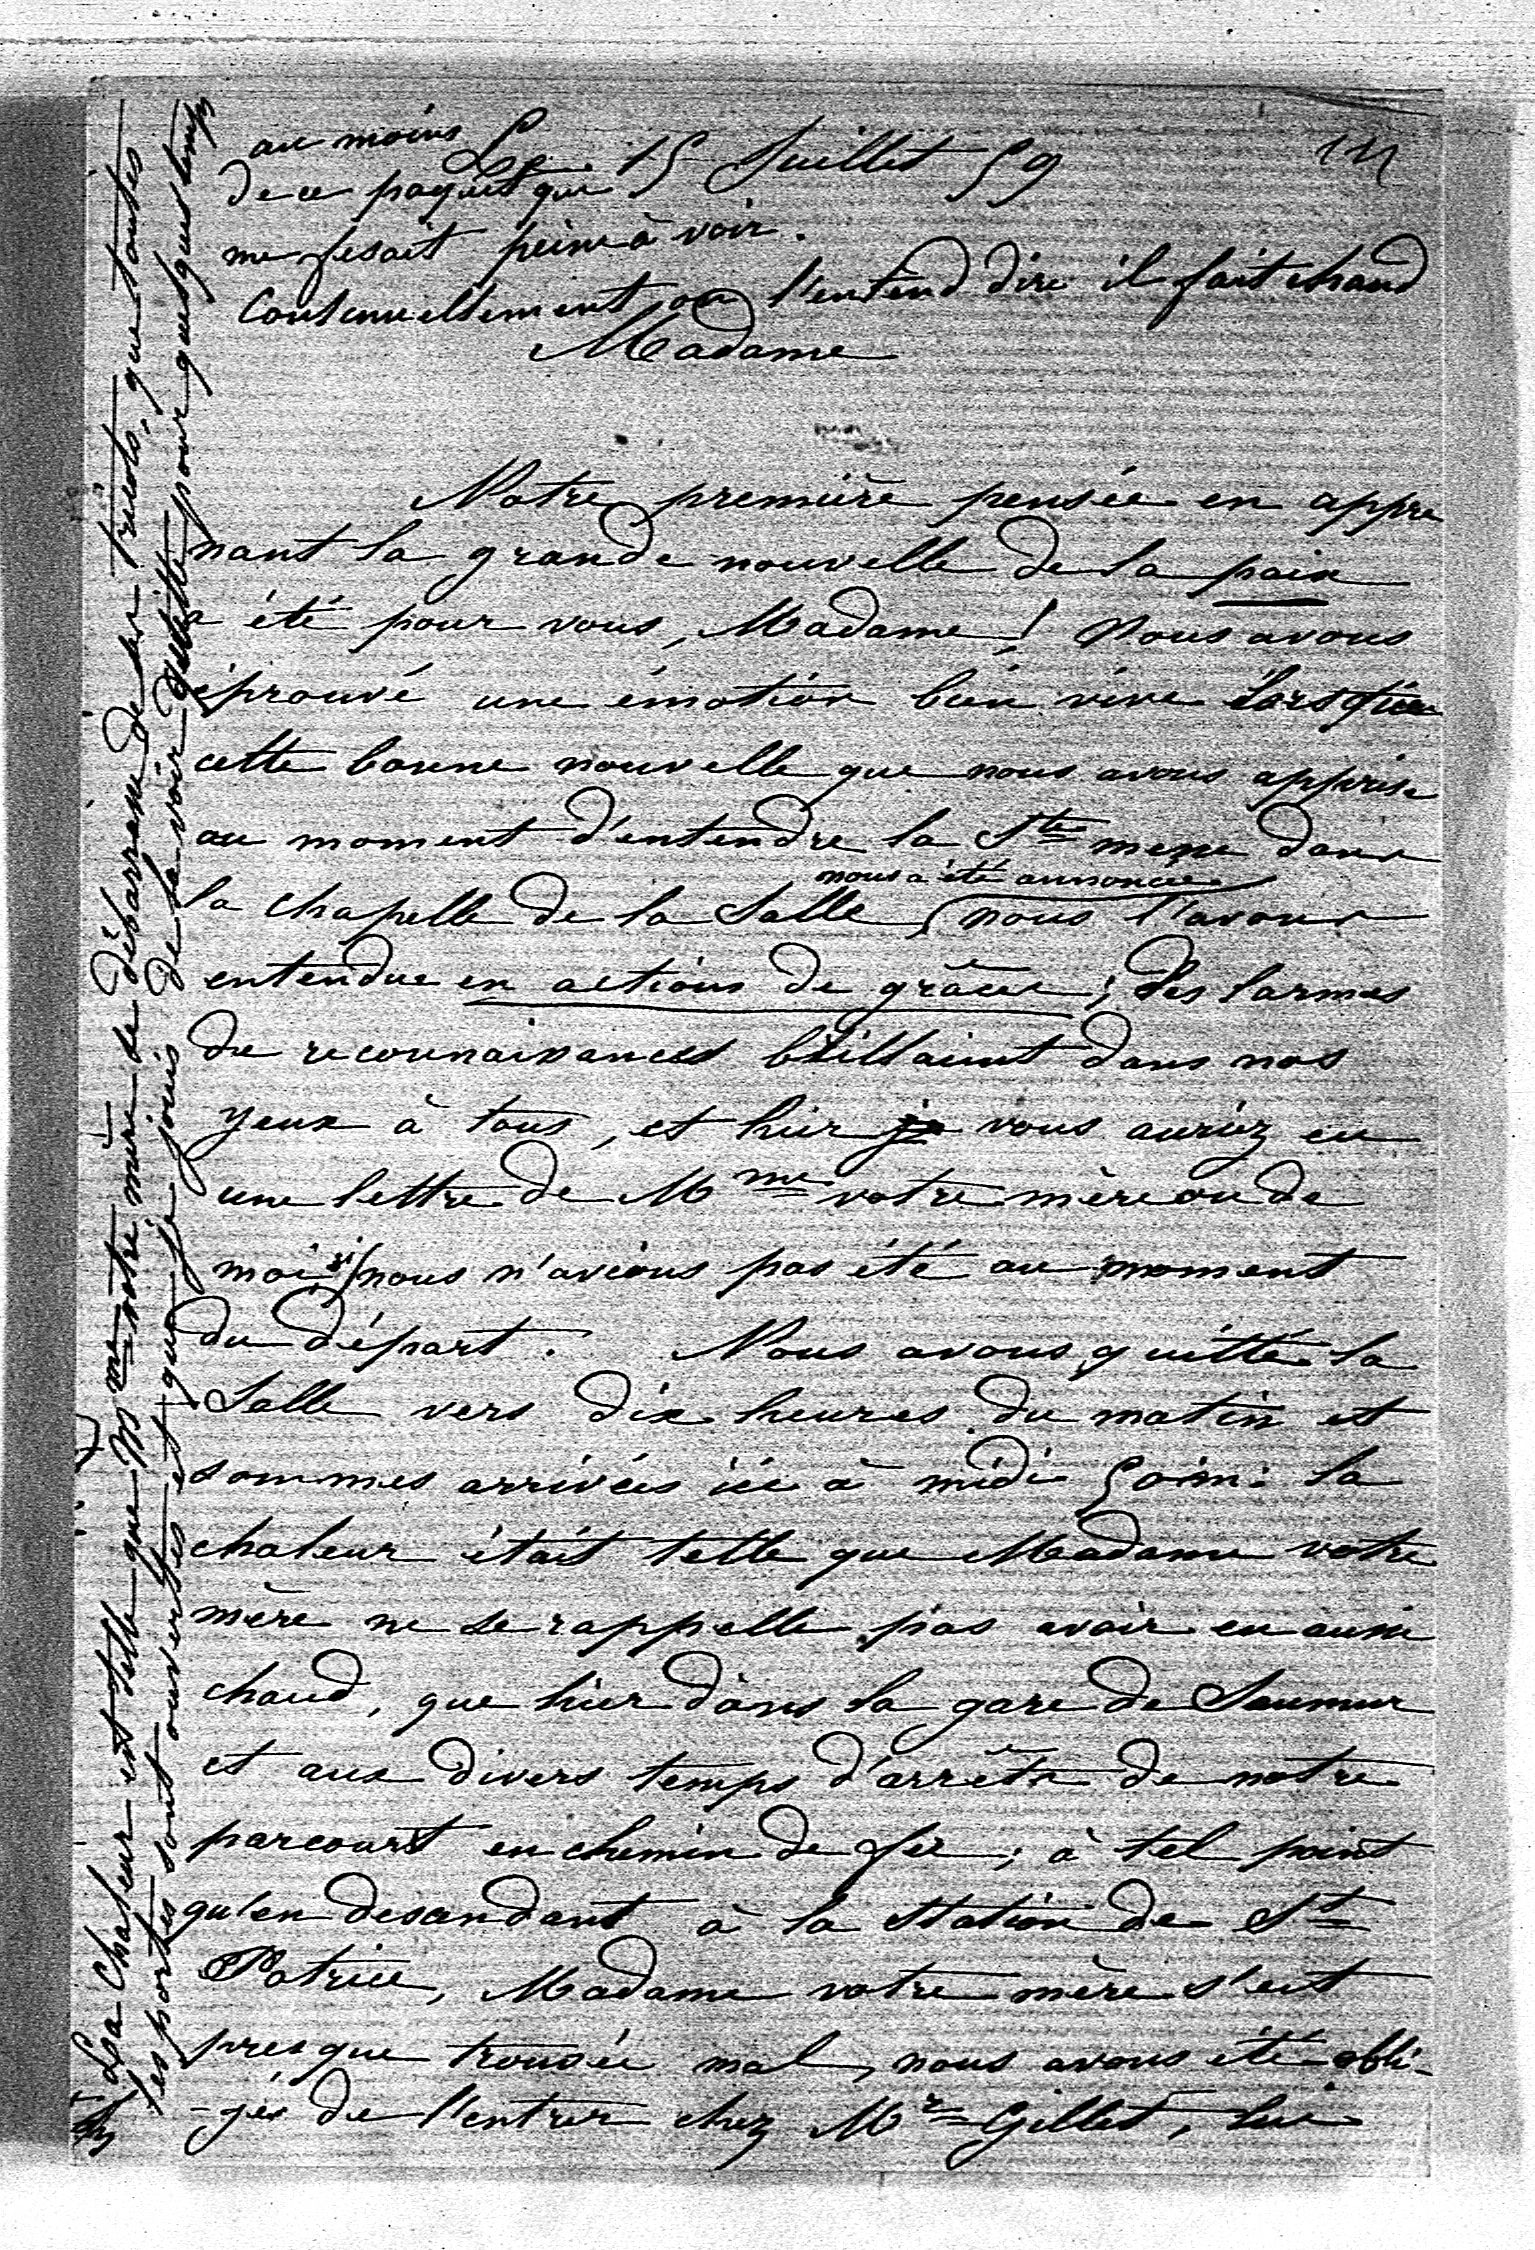 Le 15 Juillet 59
Madame
Notre première pensée en appre
nant la grande nouvelle de la paix
a été pour vous, Madame ! Nous avons
éprouvé une émotion bien vive lorsque
cette bonne nouvelle que nous avons apprise
au moment d'entendre la Ste messe dans
nous a été annoncée
la chapelle de la Salle, nous l'avons
entendue en actions de grâces ; des larmes
de reconnaissances brillaient dans nos
yeux à tous, et hier je vous auriez eu
une lettre de Mme votre mère ou de
moi si nous n'avions pas été au moment
du départ. Nous avons quitté la
Salle vers dix heures du matin et
sommes arrivées ici à midi 50 m : la
chaleur était telle que Madame votre
mère ne se rappelle pas avoir eu aussi
chaud, que hier dans la gare de Saumur
et aux divers temps d'arrêts de notre
parcourt en chemin de fer ; à tel point
qu'en descendant à la station de St
Patrice, Madame votre mère s'est
presque trouvée mal, nous avons été obli-
-gés de l'entrer chez Mr Gillet, lui
La chaleur est telle que Mme votre mère de débarrasse de ses tricots, que toutes
les portes sont ouvertes et que je jouis de la voir quitter pour quelque temps
au moins
de ce paquet que
me fesait peine à voir.
Continuellement on l'entend dire il fait chaud